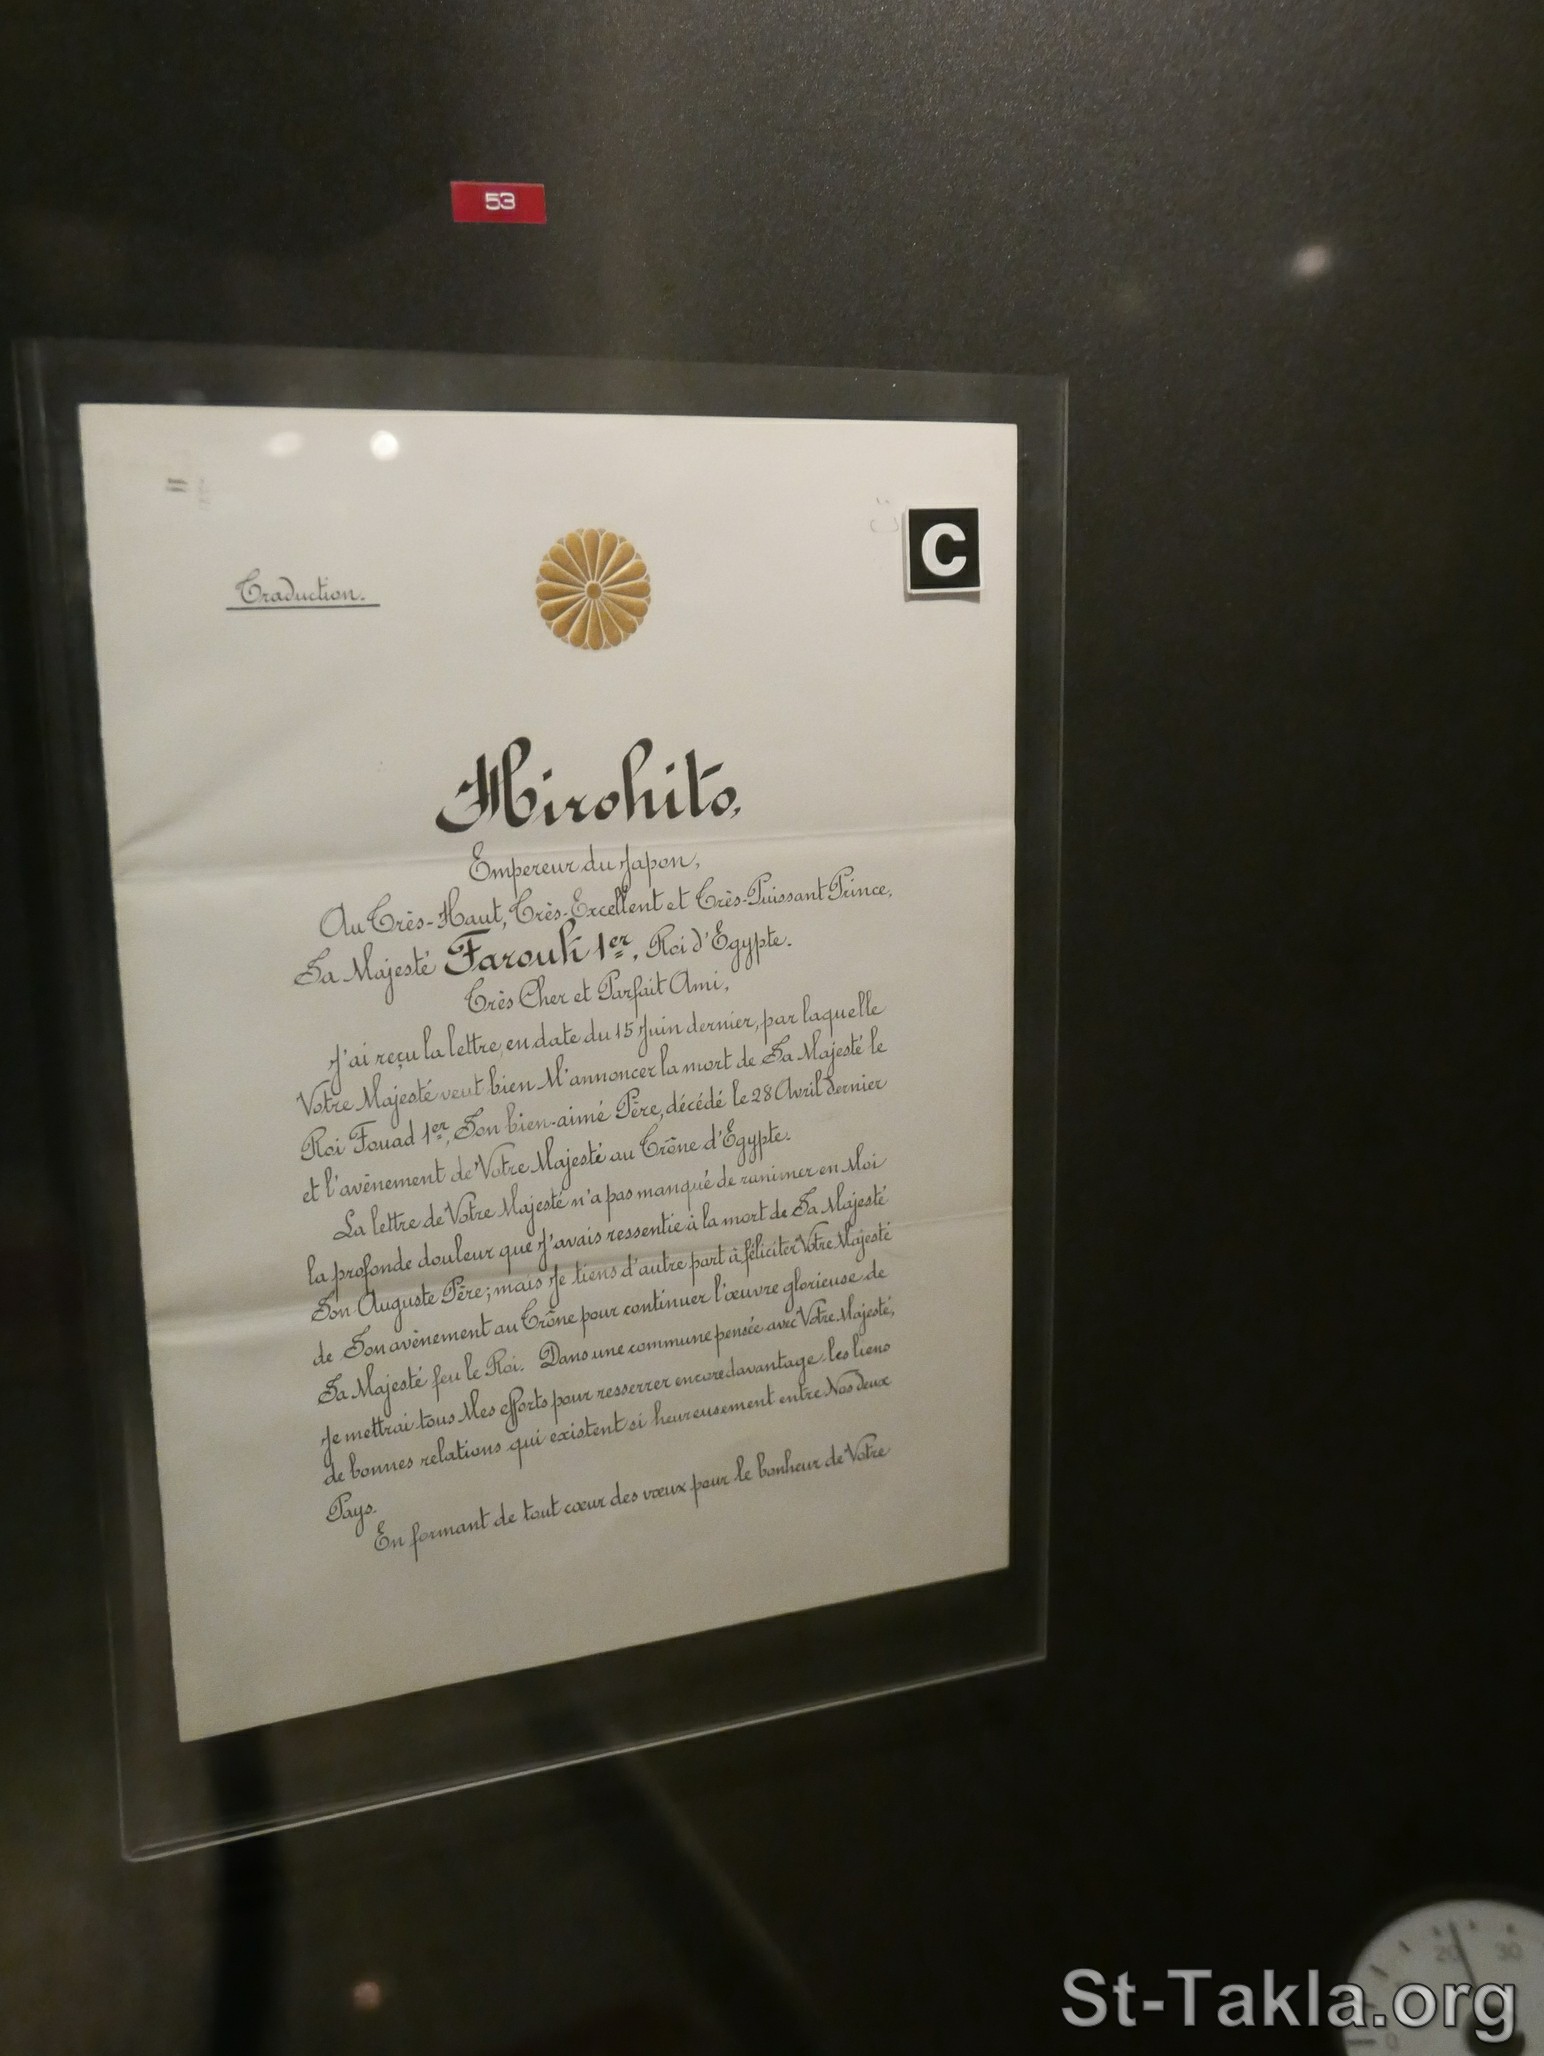 53
C
Traduction.
Hirohito,
Empereur du Japon,
Au Très-Haut, Très-Excellent et Très-Puissant Prince,
Sa Majesté Farouk 1er, Roi d'Egypte.
Très Cher et Parfait Ami,
J'ai reçu la lettre, en date du 15 Juin dernier, par laquelle
Votre Majesté veut bien M'annoncer la mort de Sa Majesté le
Roi Fouad 1er, Son bien-aimé Père, décédé le 28 Avril dernier
et l'avènement de Votre Majesté au Trône d'Egypte.
La lettre de Votre Majesté n'a pas manqué de ranimer en Moi
la profonde douleur que J'avais ressentie à la mort de Sa Majesté
Son Auguste Père; mais Je tiens d'autre part à féliciter Votre Majesté
de Son avènement au Trône pour continuer l'œuvre glorieuse de
Sa Majesté feu le Roi. Dans une commune pensée avec Votre Majesté,
Je mettrai tous Mes efforts pour resserrer encore davantage les liens
de bonnes relations qui existent si heureusement entre Nos deux
Pays.
En formant de tout cœur des vœux pour le bonheur de Votre
20 30
0
St-Takla.org